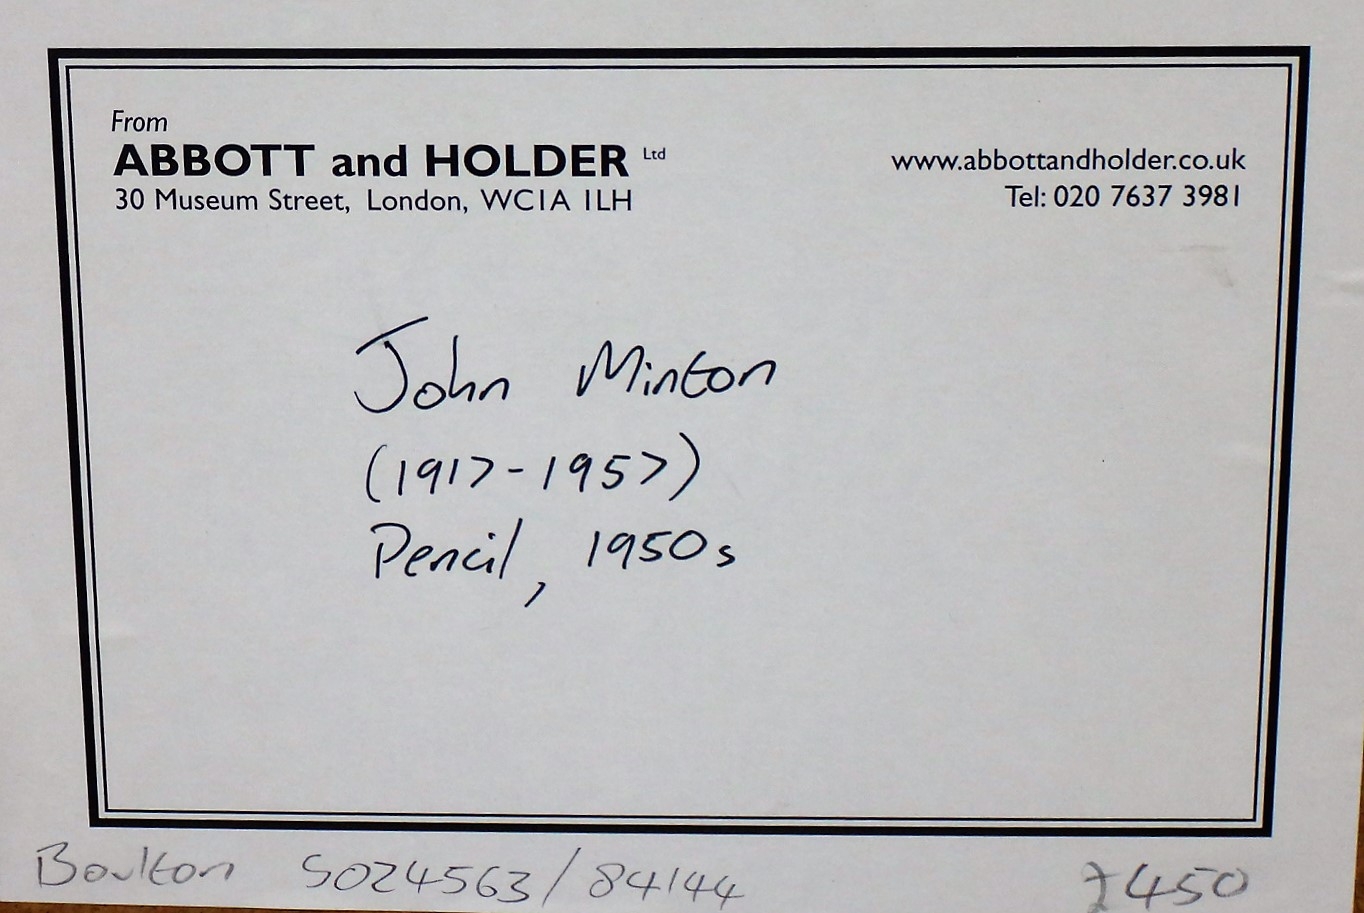 From
ABBOTT and HOLDER Ltd
30 Museum Street, London, WC1A 1LH
www.abbottandholder.co.uk
Tel: 020 7637 3981
John Minton
(1917-1957)
Pencil, 1950s
Boulton SO24563/84144 £450